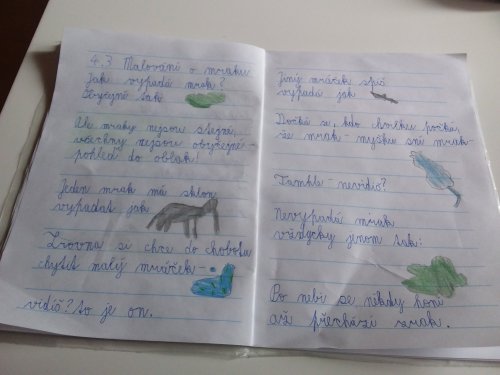 4.3 Malování o mraku
Jak vypadá mrak?
Obyčejně tak
Ale mraky nejsou stejné,
všechny nejsou obyčejné -
pohleď do oblak!
Jeden mrak má sklon
vypadat jak
Zrovna si chce do chobotu
chytit malý mráček -
vidíš? to je on.
Jiný mráček spíš
vypadá jak
Dočká se, kdo chvilku počká,
že mrak - myšku sní mrak -
Tamhle - nevidíš?
Nevypadá mrak
vždycky jenom tak:
Po nebi se někdy honí
až přechází zrak.